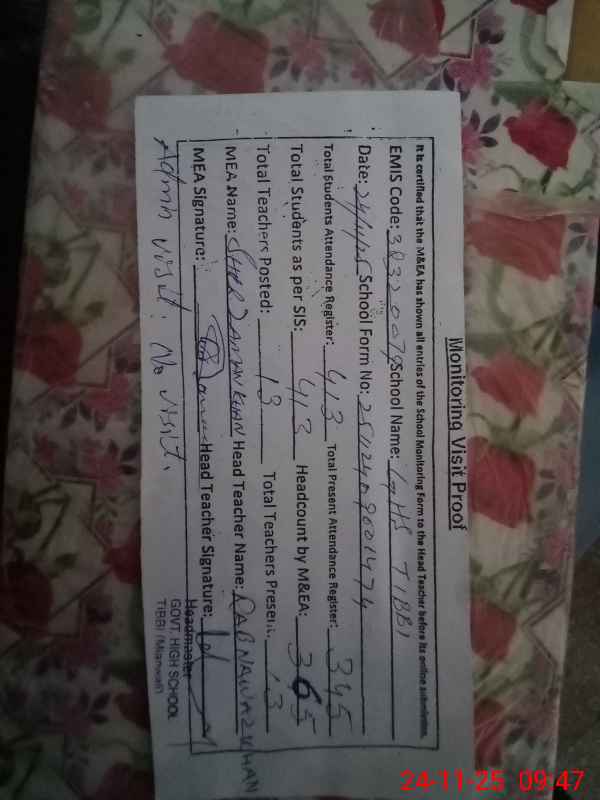 Monitoring Visit Proof
It is certified that the M&EA has shown all entries of the School Monitoring Form to the Head Teacher before its online submission.
EMIS Code: School Name: GHS TIBBI
Date: 24/11/25 School Form No: 251124090001474
Total Students Attendance Register: 413 Total Present Attendance Register: 345
Total Students as per SIS: 413 Headcount by M&EA: 365
Total Teachers Posted: 13 Total Teachers Present: 13
MEA Name: SHER ZAMAN KHAN Head Teacher Name: RABNAWAZ KHAN
MEA Signature: Head Teacher Signature:
Headmaster
GOVT. HIGH SCHOOL
TIBBI (Mianwali)
Admn visit. No visit.
24-11-25 09:47